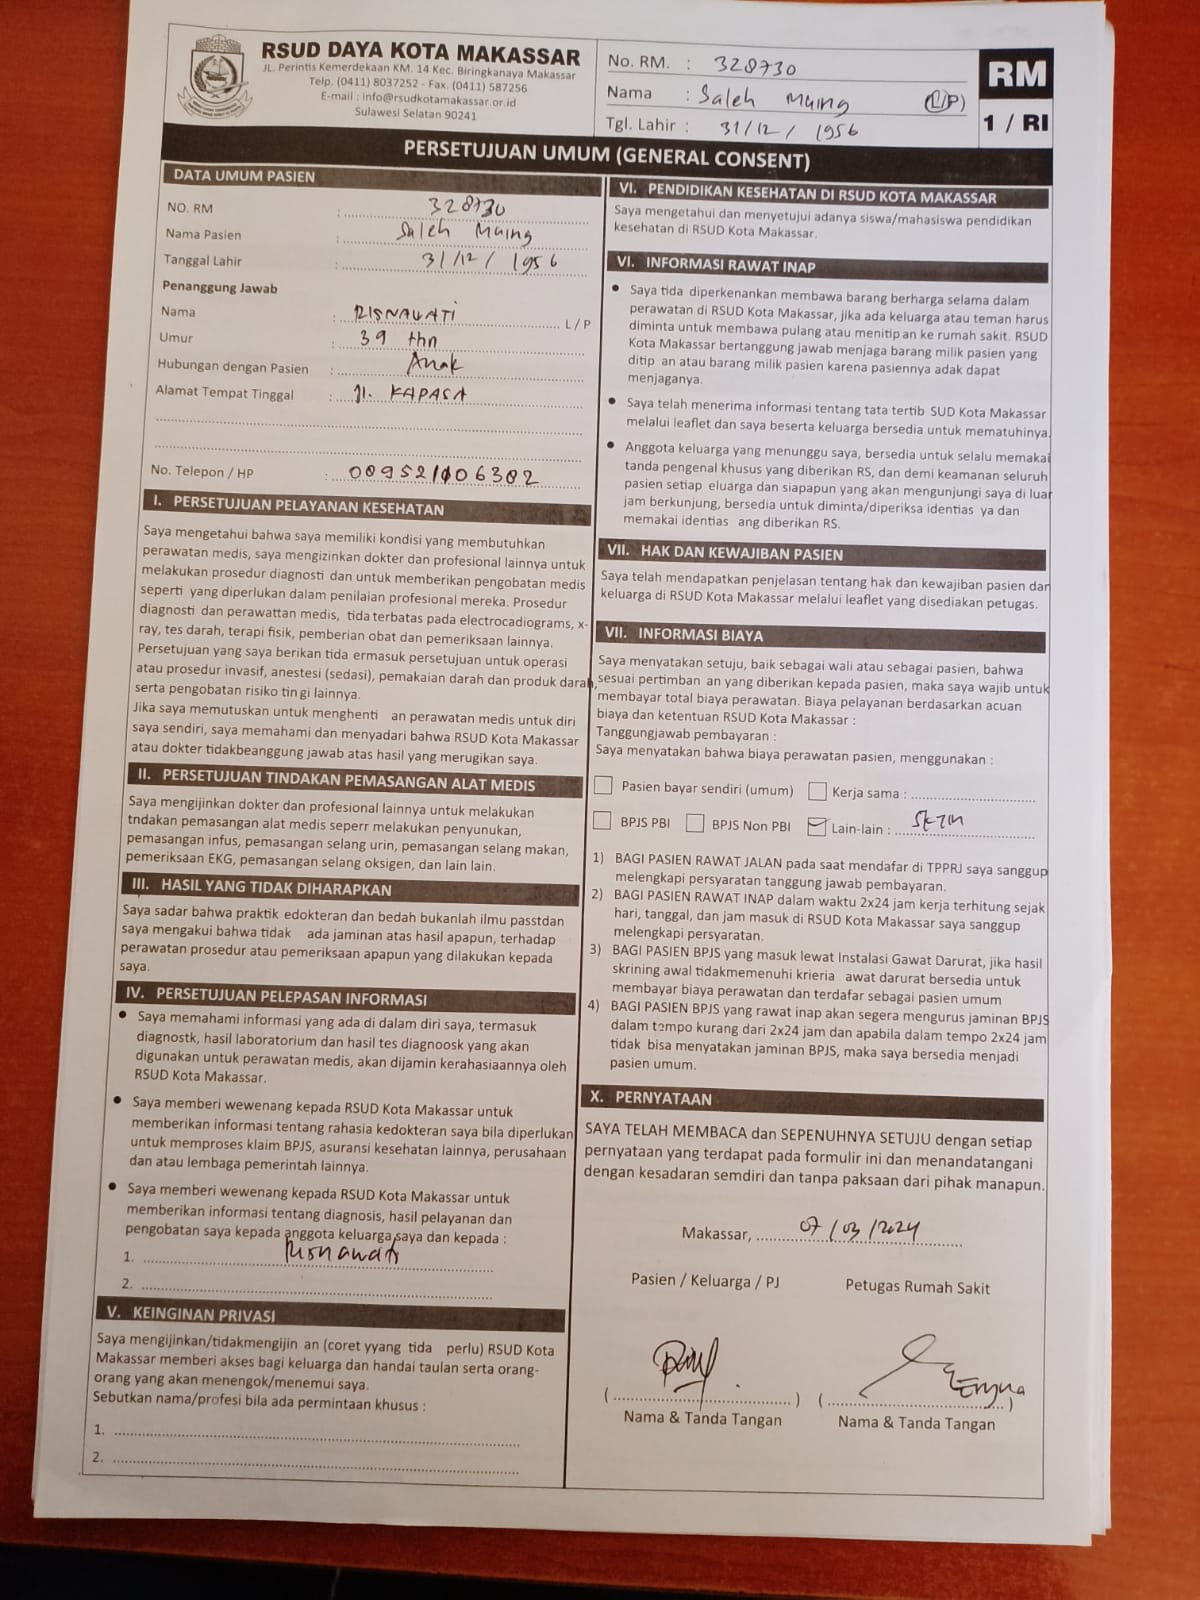 RSUD DAYA KOTA MAKASSAR
JL. Perintis Kemerdekaan KM. 14 Kec. Biringkanaya Makassar
Telp. (0411) 8037252 - Fax. (0411) 587256
E-mail : info@rsudkotamakassar.or.id
Sulawesi Selatan 90241
No. RM. : 328730
Nama : Saleh Muing (L/P)
Tgl. Lahir : 31/12/1956
RM
1 / RI
PERSETUJUAN UMUM (GENERAL CONSENT)
DATA UMUM PASIEN
NO. RM : 328730
Nama Pasien : Saleh Muing
Tanggal Lahir : 31/12/1956
Penanggung Jawab
Nama : RISNAWATI L / P
Umur : 39 thn
Hubungan dengan Pasien : Anak
Alamat Tempat Tinggal : Jl. KAPASA
No. Telepon / HP :
I. PERSETUJUAN PELAYANAN KESEHATAN
Saya mengetahui bahwa saya memiliki kondisi yang membutuhkan
perawatan medis, saya mengizinkan dokter dan profesional lainnya untuk
melakukan prosedur diagnosti dan untuk memberikan pengobatan medis
seperti yang diperlukan dalam penilaian profesional mereka. Prosedur
diagnosti dan perawattan medis, tida terbatas pada electrocadiograms, x-
ray, tes darah, terapi fisik, pemberian obat dan pemeriksaan lainnya.
Persetujuan yang saya berikan tida ermasuk persetujuan untuk operasi
atau prosedur invasif, anestesi (sedasi), pemakaian darah dan produk darah,
serta pengobatan risiko tin gi lainnya.
Jika saya memutuskan untuk menghenti an perawatan medis untuk diri
saya sendiri, saya memahami dan menyadari bahwa RSUD Kota Makassar
atau dokter tidakbeanggung jawab atas hasil yang merugikan saya.
II. PERSETUJUAN TINDAKAN PEMASANGAN ALAT MEDIS
Saya mengijinkan dokter dan profesional lainnya untuk melakukan
tndakan pemasangan alat medis seperr melakukan penyunukan,
pemasangan infus, pemasangan selang urin, pemasangan selang makan,
pemeriksaan EKG, pemasangan selang oksigen, dan lain lain.
III. HASIL YANG TIDAK DIHARAPKAN
Saya sadar bahwa praktik edokteran dan bedah bukanlah ilmu passtdan
saya mengakui bahwa tidak ada jaminan atas hasil apapun, terhadap
perawatan prosedur atau pemeriksaan apapun yang dilakukan kepada
saya.
IV. PERSETUJUAN PELEPASAN INFORMASI
• Saya memahami informasi yang ada di dalam diri saya, termasuk
diagnostk, hasil laboratorium dan hasil tes diagnoosk yang akan
digunakan untuk perawatan medis, akan dijamin kerahasiaannya oleh
RSUD Kota Makassar.
• Saya memberi wewenang kepada RSUD Kota Makassar untuk
memberikan informasi tentang rahasia kedokteran saya bila diperlukan
untuk memproses klaim BPJS, asuransi kesehatan lainnya, perusahaan
dan atau lembaga pemerintah lainnya.
• Saya memberi wewenang kepada RSUD Kota Makassar untuk
memberikan informasi tentang diagnosis, hasil pelayanan dan
pengobatan saya kepada anggota keluarga saya dan kepada :
1. Risnawati
2.
V. KEINGINAN PRIVASI
Saya mengijinkan/tidakmengijin an (coret yyang tida perlu) RSUD Kota
Makassar memberi akses bagi keluarga dan handai taulan serta orang-
orang yang akan menengok/menemui saya.
Sebutkan nama/profesi bila ada permintaan khusus :
1.
2.
VI. PENDIDIKAN KESEHATAN DI RSUD KOTA MAKASSAR
Saya mengetahui dan menyetujui adanya siswa/mahasiswa pendidikan
kesehatan di RSUD Kota Makassar.
VI. INFORMASI RAWAT INAP
• Saya tida diperkenankan membawa barang berharga selama dalam
perawatan di RSUD Kota Makassar, jika ada keluarga atau teman harus
diminta untuk membawa pulang atau menitip an ke rumah sakit. RSUD
Kota Makassar bertanggung jawab menjaga barang milik pasien yang
ditip an atau barang milik pasien karena pasiennya adak dapat
menjaganya.
• Saya telah menerima informasi tentang tata tertib SUD Kota Makassar
melalui leaflet dan saya beserta keluarga bersedia untuk mematuhinya.
• Anggota keluarga yang menunggu saya, bersedia untuk selalu memakai
tanda pengenal khusus yang diberikan RS, dan demi keamanan seluruh
pasien setiap eluarga dan siapapun yang akan mengunjungi saya di luar
jam berkunjung, bersedia untuk diminta/diperiksa identias ya dan
memakai identias ang diberikan RS.
VII. HAK DAN KEWAJIBAN PASIEN
Saya telah mendapatkan penjelasan tentang hak dan kewajiban pasien dan
keluarga di RSUD Kota Makassar melalui leaflet yang disediakan petugas.
VII. INFORMASI BIAYA
Saya menyatakan setuju, baik sebagai wali atau sebagai pasien, bahwa
sesuai pertimban an yang diberikan kepada pasien, maka saya wajib untuk
membayar total biaya perawatan. Biaya pelayanan berdasarkan acuan
biaya dan ketentuan RSUD Kota Makassar :
Tanggungjawab pembayaran :
Saya menyatakan bahwa biaya perawatan pasien, menggunakan :
Pasien bayar sendiri (umum) Kerja sama :
BPJS PBI BPJS Non PBI Lain-lain :
1) BAGI PASIEN RAWAT JALAN pada saat mendafar di TPPRJ saya sanggup
melengkapi persyaratan tanggung jawab pembayaran.
2) BAGI PASIEN RAWAT INAP dalam waktu 2x24 jam kerja terhitung sejak
hari, tanggal, dan jam masuk di RSUD Kota Makassar saya sanggup
melengkapi persyaratan.
3) BAGI PASIEN BPJS yang masuk lewat Instalasi Gawat Darurat, jika hasil
skrining awal tidakmemenuhi krieria awat darurat bersedia untuk
membayar biaya perawatan dan terdafar sebagai pasien umum
4) BAGI PASIEN BPJS yang rawat inap akan segera mengurus jaminan BPJS
dalam tempo kurang dari 2x24 jam dan apabila dalam tempo 2x24 jam
tidak bisa menyatakan jaminan BPJS, maka saya bersedia menjadi
pasien umum.
X. PERNYATAAN
SAYA TELAH MEMBACA dan SEPENUHNYA SETUJU dengan setiap
pernyataan yang terdapat pada formulir ini dan menandatangani
dengan kesadaran semdiri dan tanpa paksaan dari pihak manapun.
Makassar, 07/03/2024
Pasien / Keluarga / PJ Petugas Rumah Sakit
( ) ( )
Nama & Tanda Tangan Nama & Tanda Tangan